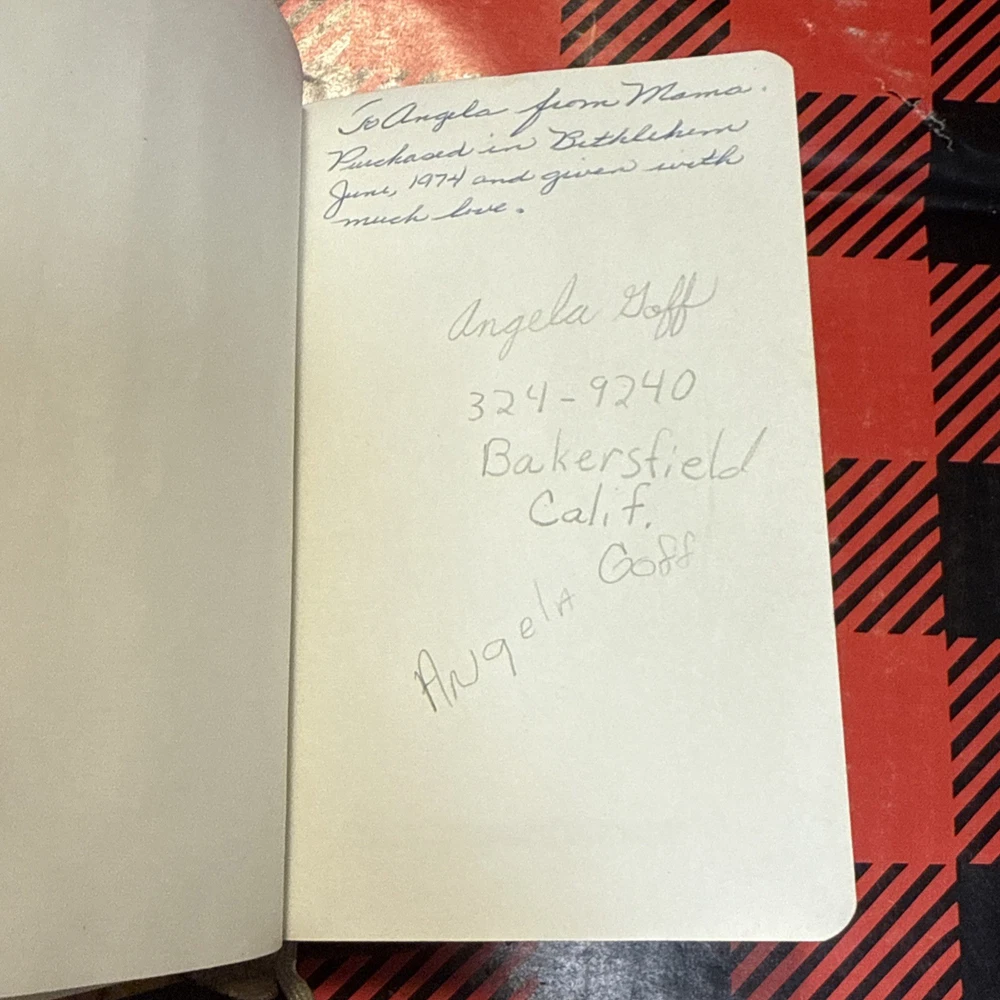 To Angela from Mama.
Purchased in Bethlehem
June, 1974 and given with
much love.
Angela Goff
324-9240
Bakersfield
Calif.
Angela Goff